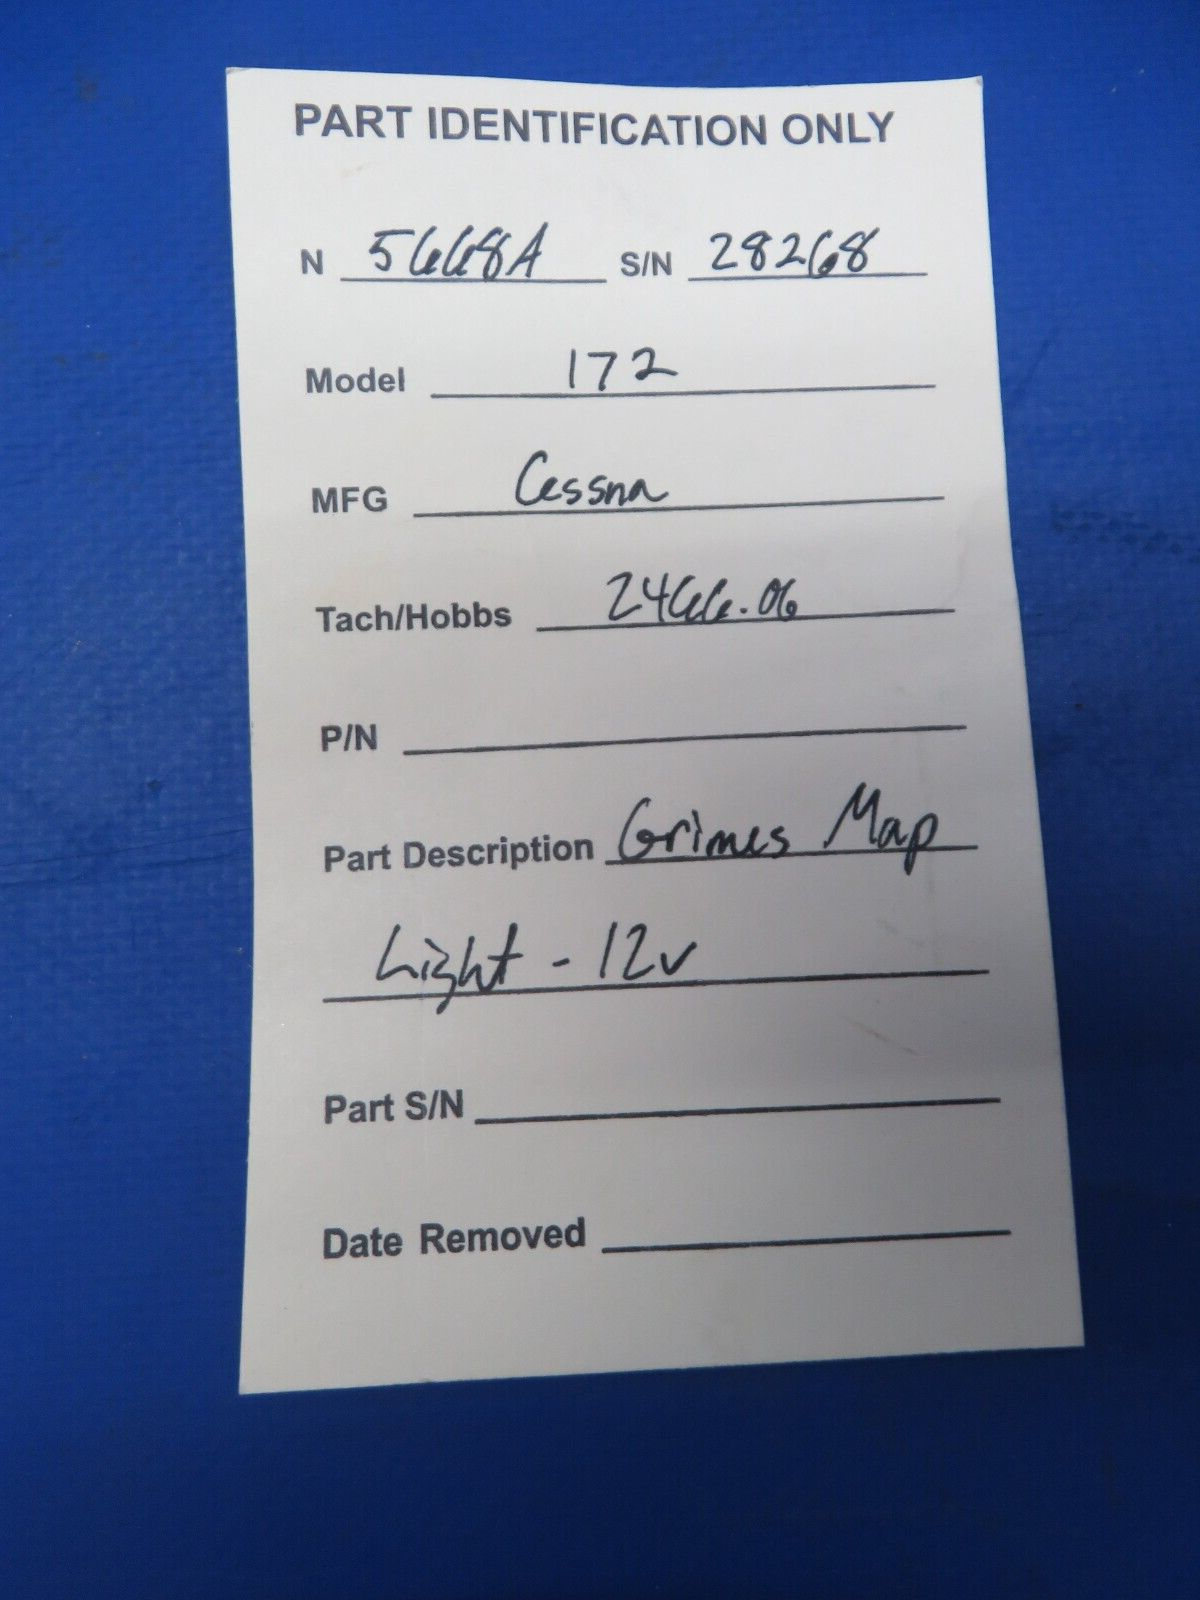 PART IDENTIFICATION ONLY
N 5668A S/N 28268
Model 172
MFG Cessna
Tach/Hobbs 2466.06
P/N
Part Description Grimes Map
Light - 12v
Part S/N
Date Removed